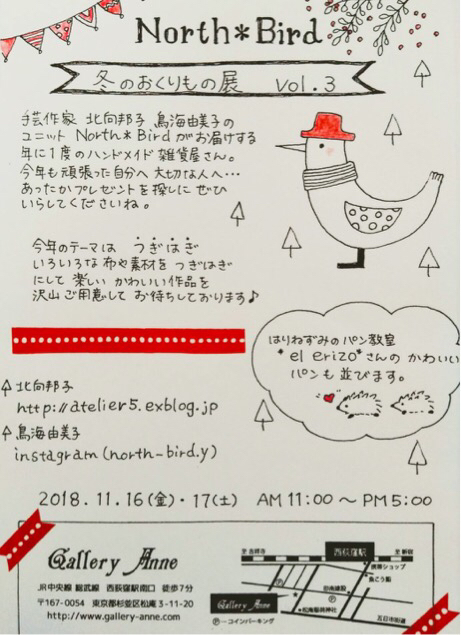 North*Bird
冬のおくりもの展 vol.3
手芸作家 北向邦子 鳥海由美子の
ユニット North*Birdがお届けする
年に1度のハンドメイド雑貨屋さん。
今年も頑張った自分へ 大切な人へ…
あったかプレゼントを探しに ぜひ
いらしてくださいね。
今年のテーマは つぎはぎ
いろいろな 布や素材を つぎはぎ
にして 楽しい かわいい作品を
沢山 ご用意して お待ちしております♪
はりねずみのパン教室
"el erizo"さんの かわいい
パンも 並びます。
北向邦子
http://atelier5.exblog.jp
鳥海由美子
instagram (north-bird.y)
2018.11.16(金)・17(土) AM 11:00 〜 PM 5:00
Gallery Anne
JR中央線 総武線 西荻窪駅南口 徒歩7分
〒167-0054 東京都杉並区松庵 3-11-20
http://www.gallery-anne.com
至 吉祥寺
西荻窪駅
至 新宿
携帯ショップ
魚こう園
Gallery Anne
松庵稲荷神社
五日市街道
Ⓟ…コインパーキング